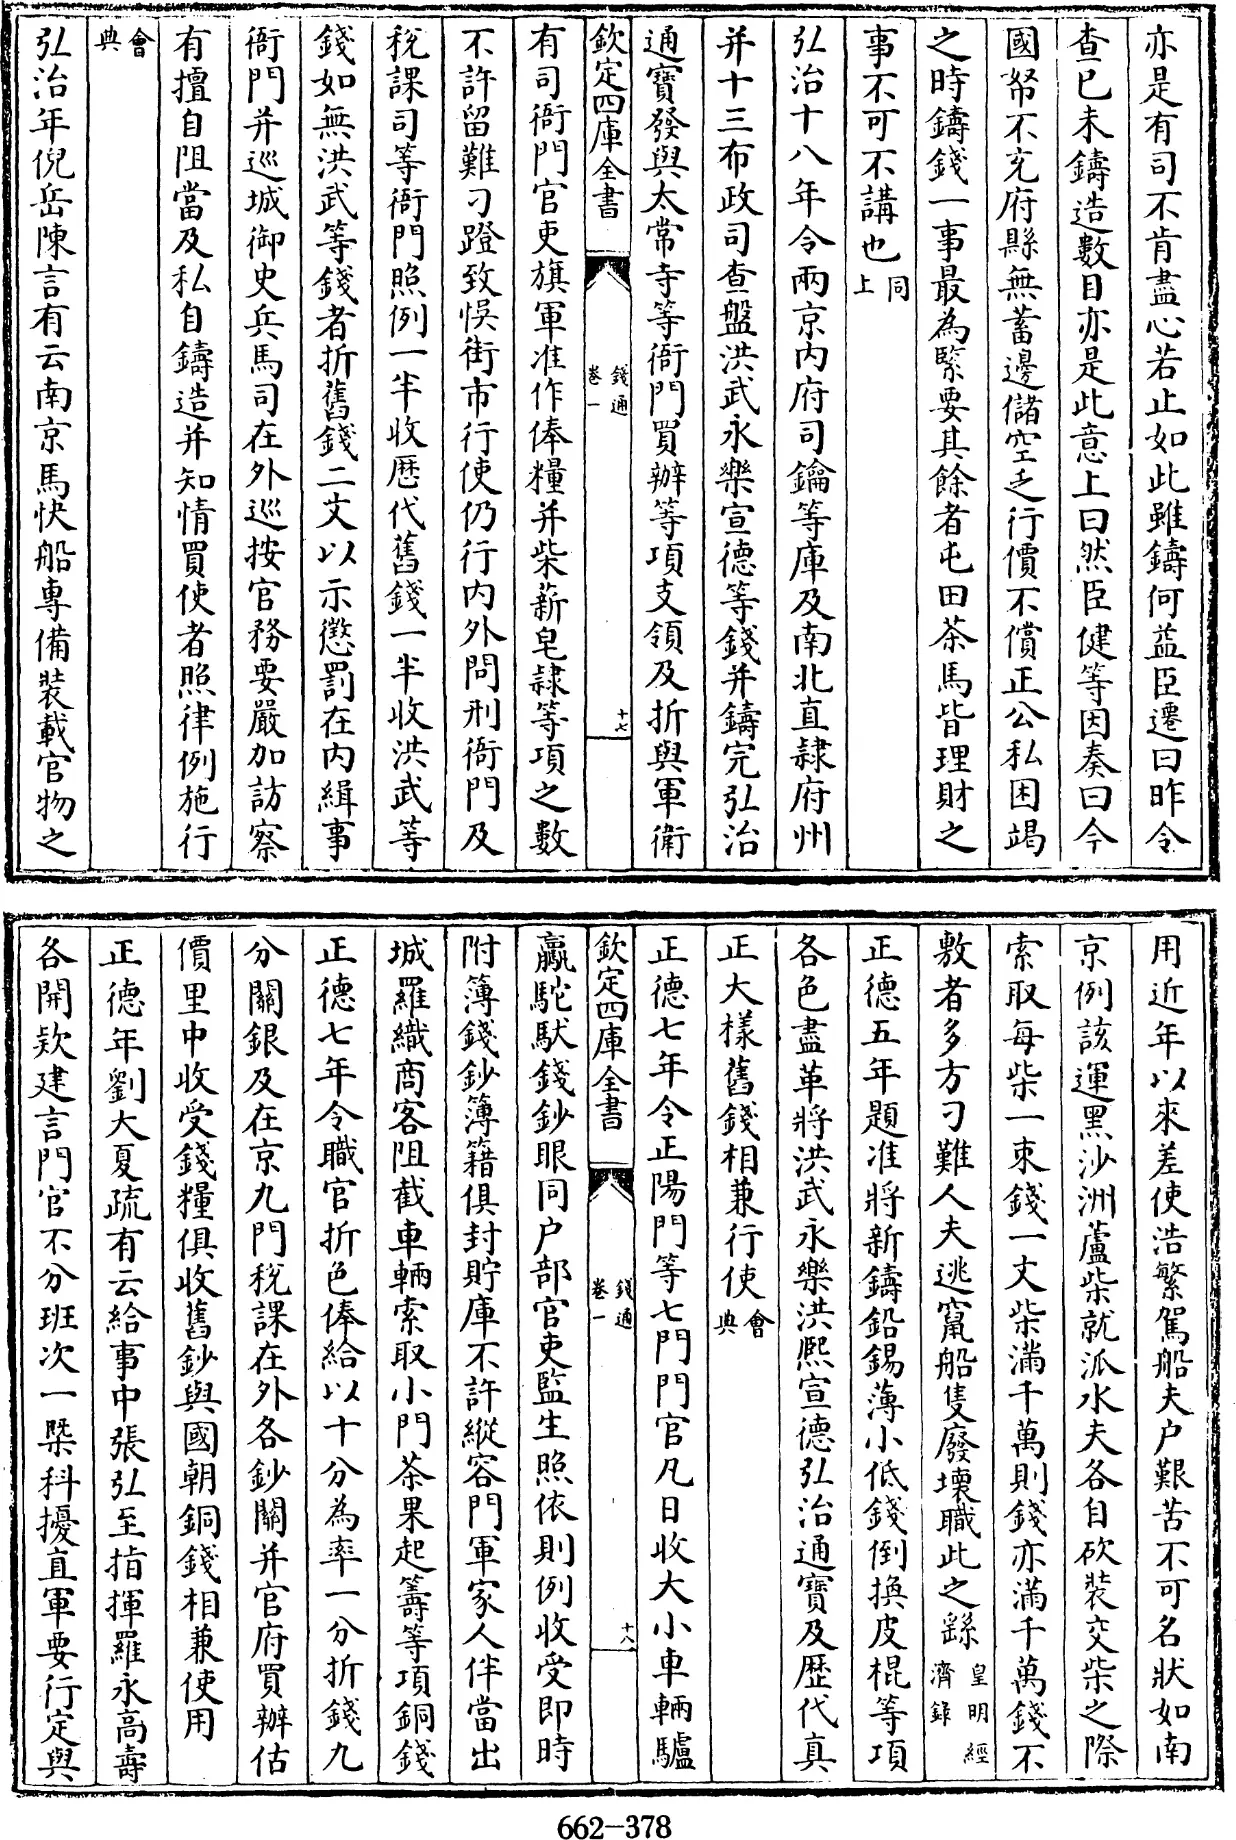 亦是有司不肯盡心若止如此雖鑄何益臣遷曰昨令
查已未鑄造數目亦是此意上曰然臣健等因奏曰今
國帑不充府縣無蓄邊儲空乏行價不償正公私困竭
之時鑄錢一事最為緊要其餘者屯田茶馬皆理財之
事不可不講也同上
弘治十八年令兩京内府司鑰等庫及南北直隷府州
并十三布政司查盤洪武永樂宣德等錢并鑄完弘治
通寶發與太常寺等衙門買辦等項支領及折與軍衛
欽定四庫全書
錢通
卷一
十七
有司衙門官吏旗軍准作俸糧并柴薪皂隷等項之數
不許留難刁蹬致悞街市行使仍行内外問刑衙門及
稅課司等衙門照例一半收歴代舊錢一半收洪武等
錢如無洪武等錢者折舊錢二文以示懲罰在内緝事
衙門并巡城御史兵馬司在外巡按官務要嚴加訪察
有擅自阻當及私自鑄造并知情買使者照律例施行
會典
弘治年倪岳陳言有云南京馬快船專備裝載官物之
用近年以來差使浩繁駕船夫户艱苦不可名狀如南
京例該運黑沙洲蘆柴就派水夫各自砍裝交柴之際
索取每柴一束錢一文柴滿千萬則錢亦滿千萬錢不
敷者多方刁難人夫逃竄船隻廢壞職此之繇皇明經濟錄
正德五年題准將新鑄鉛錫薄小低錢倒換皮棍等項
各色盡革將洪武永樂洪熙宣德弘治通寶及歴代真
正大樣舊錢相兼行使會典
正德七年令正陽門等七門門官凡日收大小車輛驢
欽定四庫全書
錢通
卷一
十八
驘駝馱錢鈔眼同户部官吏監生照依則例收受即時
附簿錢鈔簿籍俱封貯庫不許縱容門軍家人伴當出
城羅織商客阻截車輛索取小門茶果起籌等項銅錢
正德七年令職官折色俸給以十分為率一分折錢九
分關銀及在京九門稅課在外各鈔關并官府買辦估
價里中收受錢糧俱收舊鈔與國朝銅錢相兼使用
正德年劉大夏疏有云給事中張弘至指揮羅永高壽
各開欵建言門官不分班次一槩科擾直軍要行定與
662-378